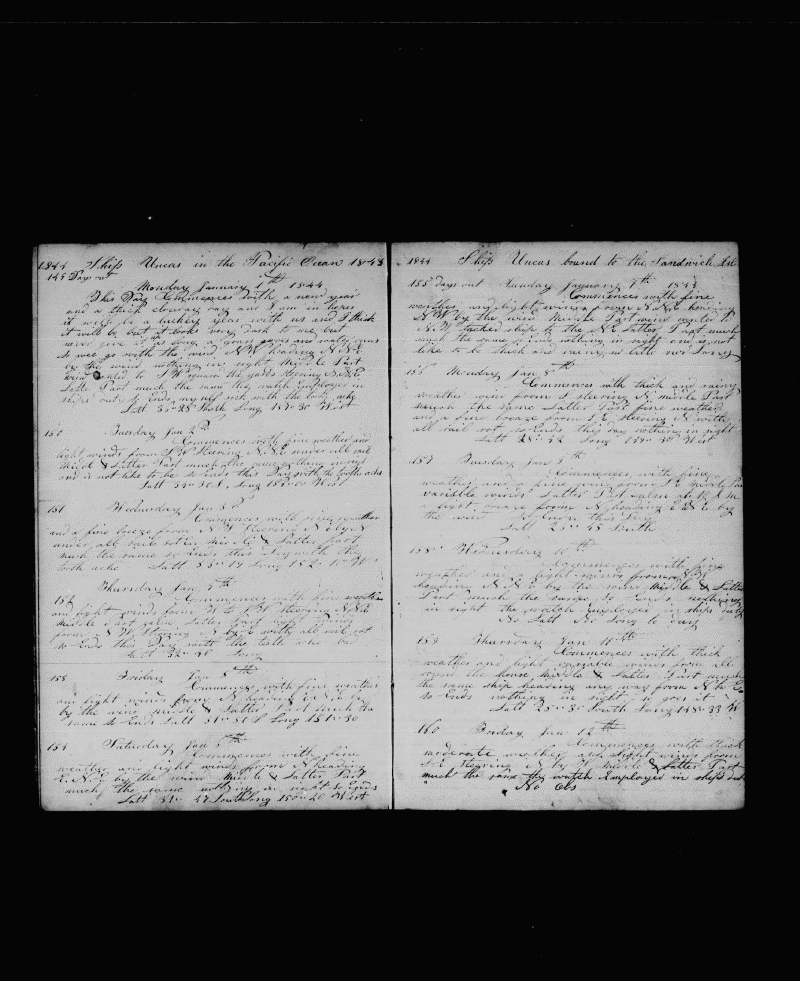 1844 Ship Uncas in the Pacific Ocean 1843
149 Days out
Monday January 1th 1844
This Day Commences with a new year
and a thick cloudy day and I am in hopes
it will be a luckey year with us and I think
it will be but it looks very dark to me but
never give up as long a good
so wee go with the wind N W heading N N E
by the wind nothing in sight Middle Part
wind to S W the yards stearing N N E
Latt Part much the same the watch Employed in
ships duty so Ends my self sick with the tooth ache
Latt 35 38 South Long 157 30 West
150 Tuesday Jan 2d
Commences with fine weather and
light winds from S W stearing N N E under all sail
Middle & Latter Part much the same nothing in sight
and is not like to be so Ends this Day with the tooth ache
Latt 34 50 S Long 153 00 West
151 Wednesday Jan 3d
Commences with fine weather
and a fine breeze from N W stearing N E by N
under all sail Middle & Latter part
much the same so Ends this Day with the
tooth ache Latt 33 19 Long 152 10 W
Thursday Jan 4th
152 Commences with fine weather
and light winds from W to S W stearing N N E
Middle Part calm Latter Part light winds
from N W stearing N by E with all sail out
so Ends this Day with the teeth ache bad
Latt 32 41 Long
153 Friday Jan 5th
Commences with fine weather
and light winds from N heading E N E
by the wind Middle & Latter Part much the
same so Ends Latt 31 50 S Long 151 30
154 Saturday Jan 6th
Commences with fine
weather and light winds from N heading
E N E by the wind Middle & Latter Part
much the same nothing in sight so Ends
Latt 31 27 South Long 150 20 West
1844 Ship Uncas bound to the Sandwich Isl
155 Days out Sunday January 7th 1844
Commences with fine
weather and light winds from N N E heading
N W by the wind Middle Part wind
N W tacked ship to the N E Latter Part much
much the same so Ends nothing in sight and is not
like to be thick and rainy no Latt nor Long
156 Monday Jan 8th
Commences with thick and rainy
weather wind from S stearing N Middle Part
much the same Latter Part fine weather
and a fine breeze from S E stearing N with
all sail out so Ends this day nothing in sight
Latt 28 32 Long 150 30 West
157 Tuesday Jan 9th
Commences with fine
weather and a fine wind from S E Middle Part
variable winds Latter Part calm at
a light breeze from N heading E N E by
the wind
Latt 25 45 South
158 Wednesday 10th
Commences with fine
weather and a light winds from N W
heading N N E by the wind Middle & Latter
Part much the same so Ends nothing
in sight the watch Employed in ships duty
No Latt No Long to day
159 Thursday Jan 11th
Commences with thick
weather and light variable winds from all
round the house Middle & Latter Part much
the same ship heading any way from N to E
so Ends nothing in sight so goes it
Latt 25 30 South Long 148 33 W
160 Friday Jan 12th
Commences with thick
moderate weather and light winds from
S E stearing N by W Middle & Latter Part
much the same the watch Employed in ships duty
No Obs